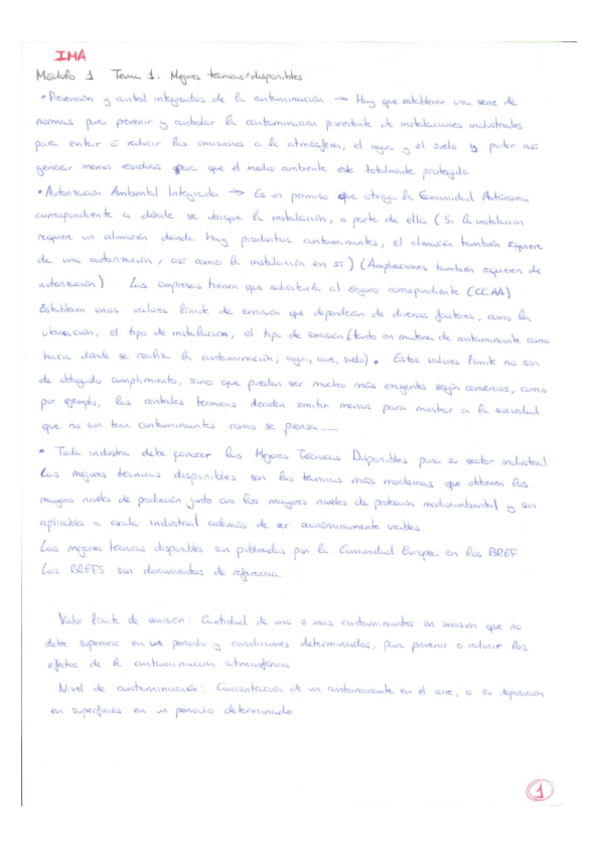 IMA
Módulo 1 Tema 1: Mejores técnicas disponibles
• Prevención y control integrados de la contaminación → Hay que establecer una serie de
normas para prevenir y controlar la contaminación procedente de instalaciones industriales
para evitar ó reducir las emisiones a la atmósfera, el agua y el suelo y poder así
generar menos residuos para que el medio ambiente esté totalmente protegido.
• Autorización Ambiental Integrada → Es un permiso que otorga la Comunidad Autónoma
correspondiente a donde se ubique la instalación, o parte de ella (Si la instalación
requiere un almacén donde hay productos contaminantes, el almacén también requiere
de una autorización, así como la instalación en sí) (Ampliaciones también requieren de
autorización). Las empresas tienen que solicitarla al órgano correspondiente (CCAA)
Establecen unos valores límite de emisión que dependen de diversos factores, como la
ubicación, el tipo de instalación, el tipo de emisión (tanto en materia de contaminante como
hacia donde se realiza la contaminación; agua, aire, suelo). Estos valores límite no son
de obligado cumplimiento, sino que pueden ser mucho más exigentes según convenios, como
por ejemplo, las centrales térmicas deciden emitir menos para mostrar a la sociedad
que no son tan contaminantes como se piensa
• Toda industria debe conocer las Mejores Técnicas Disponibles para su sector industrial
Las mejores técnicas disponibles son las técnicas más modernas que obtienen los
mayores niveles de producción junto con los mayores niveles de protección medioambiental y son
aplicables a escala industrial además de ser económicamente viables.
Las mejores técnicas disponibles son publicadas por la Comunidad Europea en los BREF
Los BREFS son documentos de referencia.
Valor límite de emisión: Cantidad de uno o más contaminantes en emisión que no
debe superarse en un periodo y condiciones determinadas, para prevenir o reducir los
efectos de la contaminación atmosférica
Nivel de contaminación: Concentración de un contaminante en el aire, o su deposición
en superficies en un periodo determinado
1